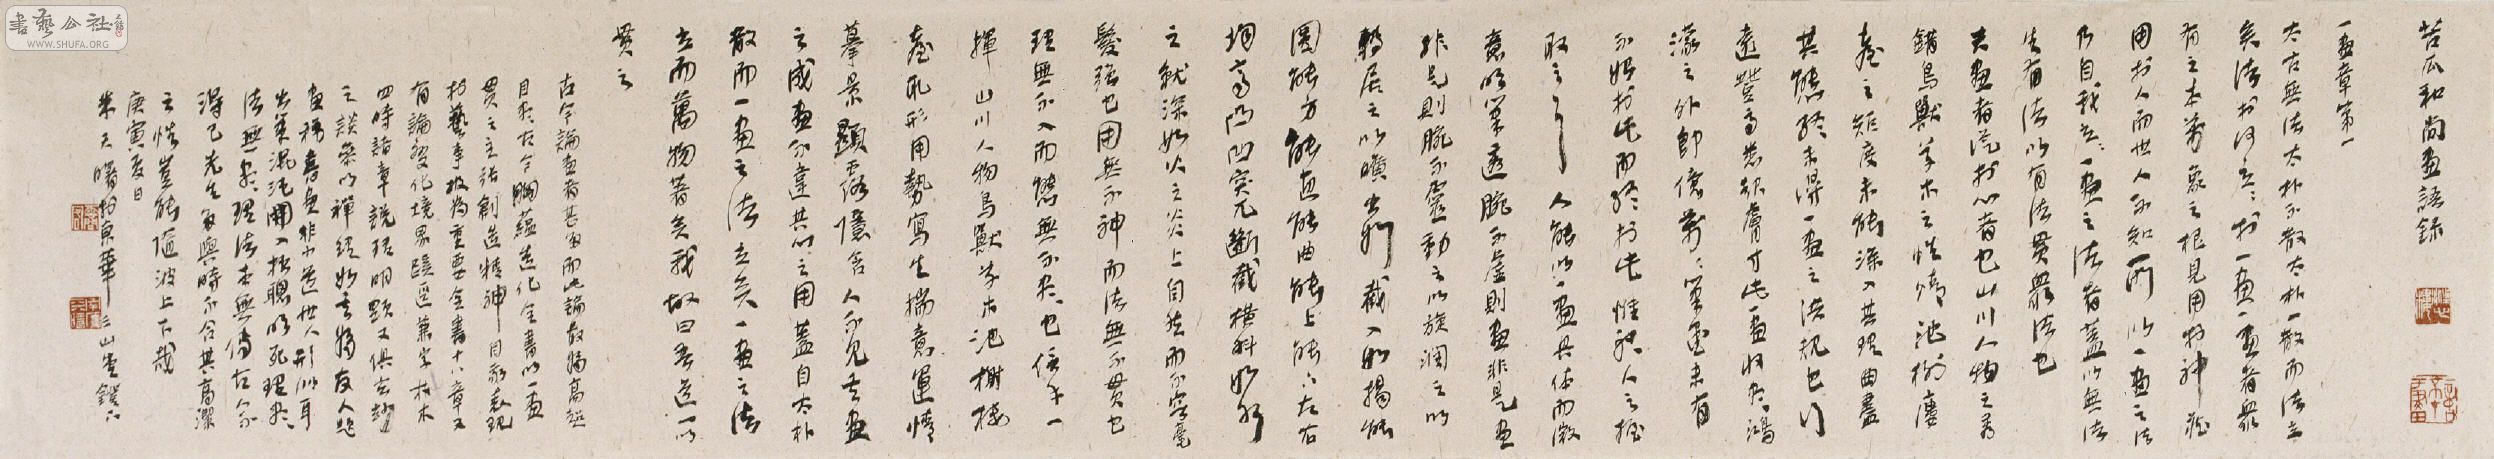 苦瓜和尚画語錄
一画章第一
太古無法太朴不散太朴一散而法立
矣法於何立立於一画一画者眾
有之本萬象之根見用於神藏
用於人而世人不知所以一画之法
乃自我立立一画之法者蓋以無法
生有法以有法貫眾法也
夫画者從於心者也山川人物之秀
錯鳥獸草木之性情池榭樓
臺之矩度未能深入其理曲盡
其態終未得一画之洪規也行
遠登高悉起膚寸此一画收盡鴻
濛之外即億萬萬筆墨未有
不始於此而終於此惟聽人之握
取之耳人能以一画具体而微
意明筆透腕不虛則画非是画
非是則腕不靈動之以旋潤之以
轉居之以曠出如截入如揭能
圓能方能直能曲能上能下左右
均齊凸凹突兀斷截橫斜如水
之就深如火之炎上自然而不容毫
髮強也用無不神而法無不貫也
理無不入而態無不盡也信手一
揮山川人物鳥獸草木池榭樓
臺取形用勢寫生揣意運情
摹景顯露隱含人不見其画
之成画不違其心之用蓋自太朴
散而一画之法立矣一画之法
立而萬物著矣我故曰吾道一以
貫之
古今論画者甚多而此論最為高超
目盡古今胸蘊造化全書以一画
貫之主張創造精神自家表現
於藝事极為重要全書十八章又
有論變化境界蹊徑兼字林木
四時諸章說理明顯又俱玄妙
之談參以禪理
出筆混沌開入拙聰明死理盡
法無盡理法本無傳古人不
得已先生最與時不合其高潔
之性豈能隨波上下哉
庚寅夏日
朱天曙於京華
書藝公社
WWW.SHUFA.ORG